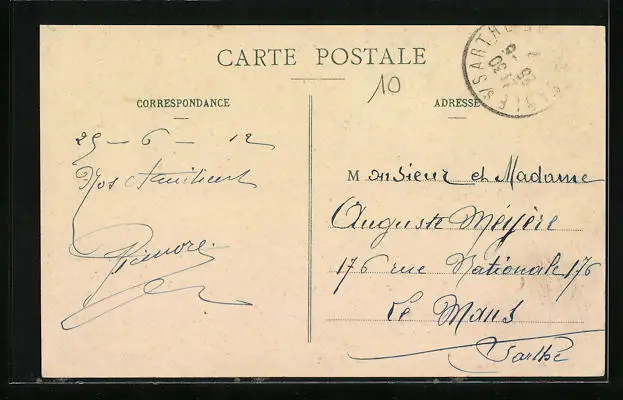 CARTE POSTALE
10
CORRESPONDANCE
ADRESSE
29 - 6 - 12
Monsieur et Madame
Auguste Méyère
176 rue Nationale 176
Le Mans
Sarthe
SABLE S/SARTHE